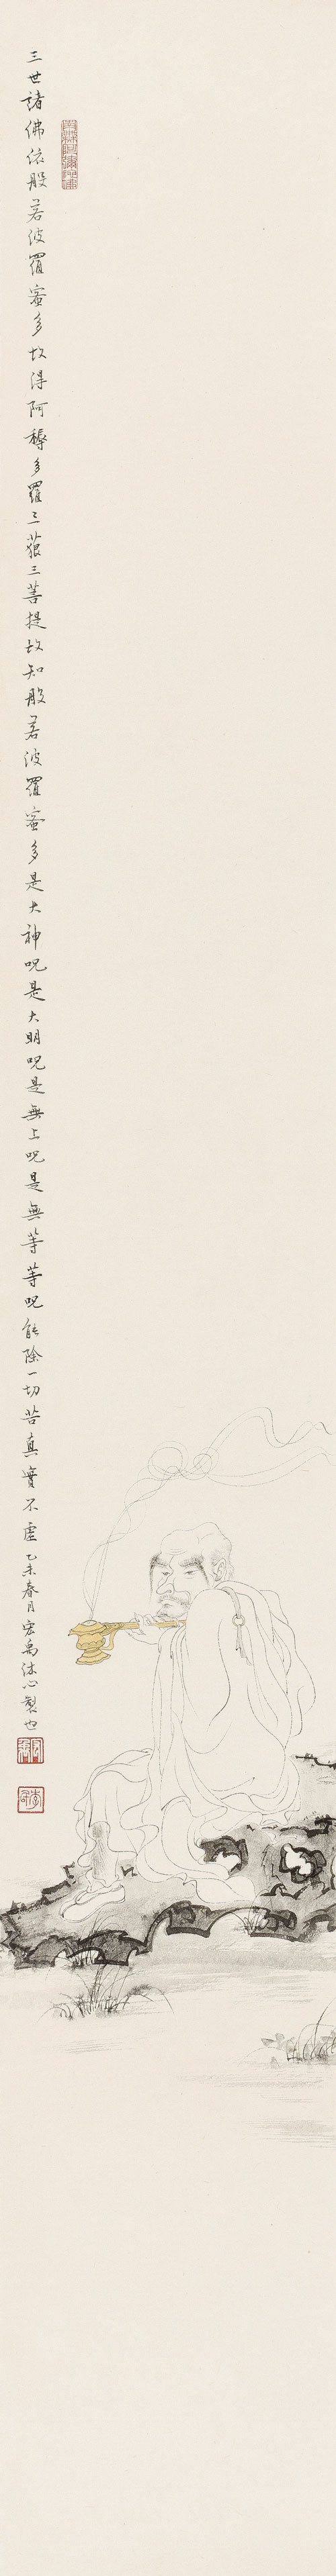 三世諸佛依般若波羅蜜多故得阿耨多羅三藐三菩提故知般若波羅蜜多是大神呪是大明呪是無上呪是無等等呪能除一切苦真實不虛乙未春月宏禹沐心製也
南無阿彌陀佛